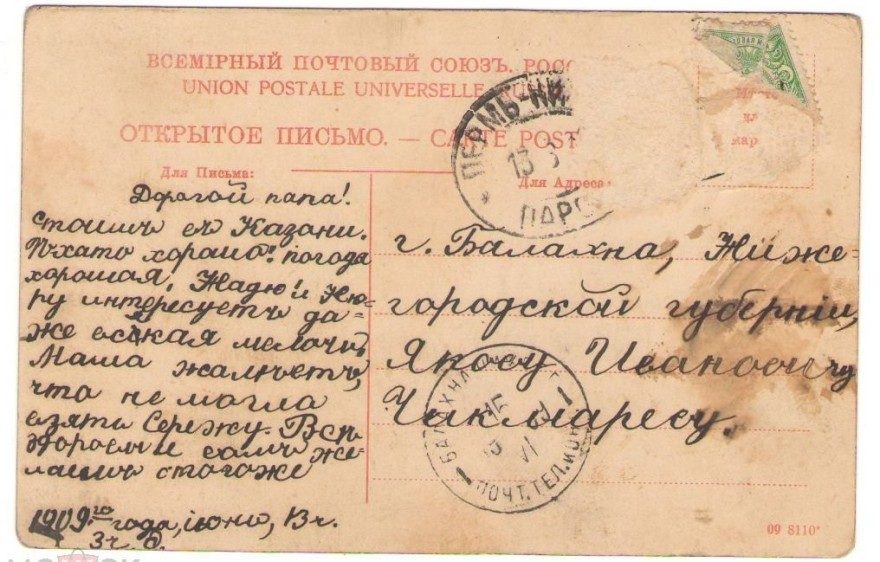 ВСЕМІРНЫЙ ПОЧТОВЫЙ СОЮЗЪ. РОСС
UNION POSTALE UNIVERSELLE. RUS
ОТКРЫТОЕ ПИСЬМО. — CARTE POST
Для Письма:
Для Адреса:
ПЕРМЬ-НИ
13 6
ПАРО
Дорогой папа!
стоимъ въ Казани.
Ѣхать хорошо! погода
хорошая, Надю и Ню-
ру интересуетъ да-
же всякая мелочь,
Маша жалѣетъ,
что не могла
взять Сережу. Всѣ
здоровы и вамъ же-
лаемъ того же
1909 го года, іюня, 13 ч.
3 ч. д.
г. Балахна, Ниже-
городской губерніи,
Якову Ивановичу
Чикмареву.
БАЛАХНА
15 VI
ПОЧТ. ТЕЛ. КОН.
09 8110